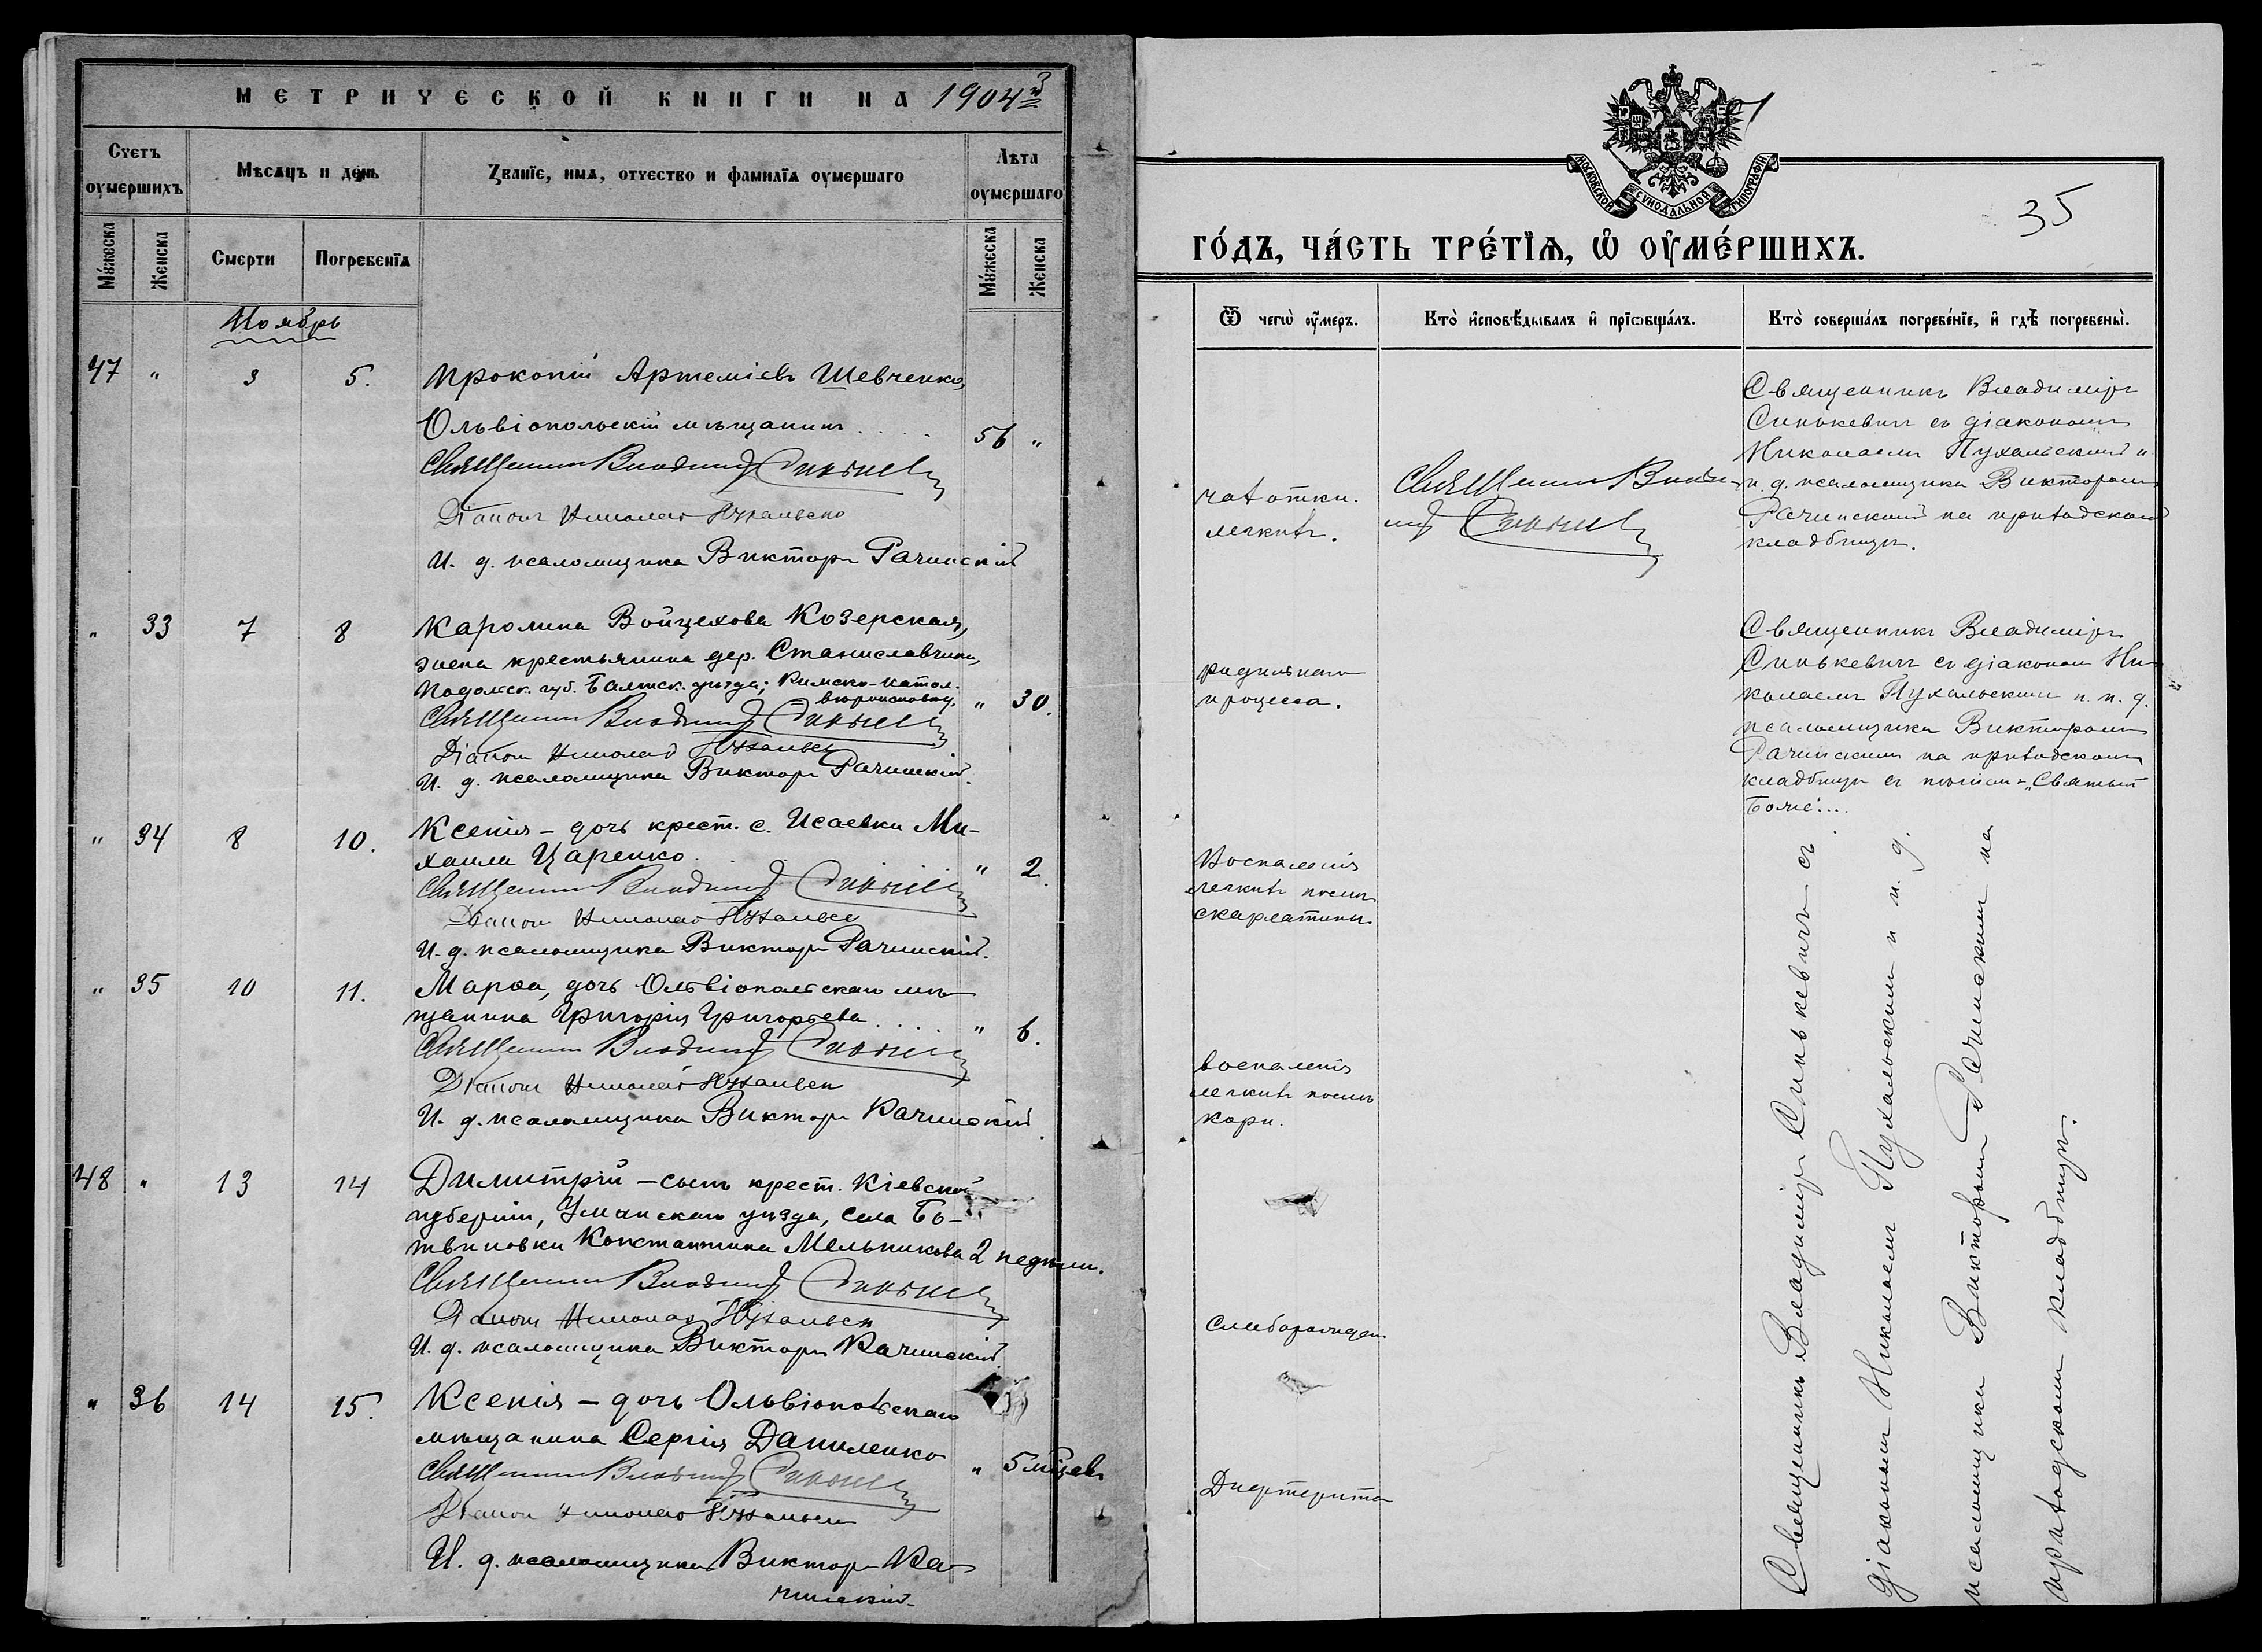 МЕТРИЧЕСКОЙ КНИГИ НА 1904й
Счетъ оумершихъ
Мѣсяцъ и день
Званїе, имѧ, отчество и фамилїѧ оумершаго
Лѣта оумершаго
Мꙋжеска
Женска
Смерти
Погребенїѧ
Мꙋжеска
Женска
Ноябрь
47 " 3 5. Прокопій Артеміевъ Шевченко,
Ольвіопольскій мѣщанинъ . . . . 56 "
Священникъ Владиміръ Синькевичъ
Діаконъ Николай Пухальскій
И. д. псаломщика Викторъ Рачинскій
" 33 7 8 Каролина Войцехова Козерская,
жена крестьянина дер. Станиславчика,
Подольск. губ. Балтск. уѣзда; Римско-катол.
вѣроисповѣд. " 30.
Священникъ Владиміръ Синькевичъ
Діаконъ Николай Пухальскій
И. д. псаломщика Викторъ Рачинскій.
" 34 8 10. Ксенія – дочь крест. с. Исаевки Ми-
хаила Царенко . . . " 2.
Священникъ Владиміръ Синькевичъ
Діаконъ Николай Пухальскій
И. д. псаломщика Викторъ Рачинскій.
" 35 10 11. Марѳа, дочь Ольвіопольскаго мѣ-
щанина Григорія Григорьева . . . . " 6.
Священникъ Владиміръ Синькевичъ
Діаконъ Николай Пухальскій
И. д. псаломщика Викторъ Рачинскій.
48 " 13 14 Димитрій – сынъ крест. Кіевской
губерніи, Уманскаго уѣзда, села Бо-
твиновки Константина Мельникова 2 недѣли.
Священникъ Владиміръ Синькевичъ
Діаконъ Николай Пухальскій
И. д. псаломщика Викторъ Рачинскій.
" 36 14 15. Ксенія – дочь Ольвіопольскаго
мѣщанина Сергія Даниленко
" 5 мѣсцевъ
Священникъ Владиміръ Синькевичъ
Діаконъ Николай Пухальскій
И. д. псаломщика Викторъ Ра-
чинскій.
МОСКОВСКОЙ СѴНОДАЛЬНОЙ ТИПОГРАФІИ
35
ГО́ДЪ, ЧА́СТЬ ТРЕ́ТЇѦ, Ѡ҆ ОУ҆МЕ́РШИХЪ.
Ѿ чегѡ̀ оу҆́меръ.
Кто̀ и҆сповѣ́дывалъ и҆ прїѡбща́лъ.
Кто̀ соверша́лъ погребе́нїе, и҆ гдѣ̀ погребены̀.
чахотки
легкихъ.
Священникъ Влади-
міръ Синькевичъ
Священникъ Владиміръ
Синькевичъ съ діакономъ
Николаемъ Пухальскимъ и
и. д. псаломщика Викторомъ
Рачинскимъ на приходскомъ
кладбищѣ.
родильнаго
процесса.
Священникъ Владиміръ
Синькевичъ съ діакономъ Ни-
колаемъ Пухальскимъ и. и. д.
псаломщика Викторомъ
Рачинскимъ на приходскомъ
кладбищѣ съ пѣніемъ „Святый
Боже"...
Воспаленія
легкихъ послѣ
скарлатины
воспаленія
легкихъ послѣ
кори.
Слаборожден.
Дифтерита
Священникъ Владиміръ Синькевичъ съ
діакономъ Николаемъ Пухальскимъ и и. д.
псаломщика Викторомъ Рачинскимъ на
приходскомъ кладбищѣ.